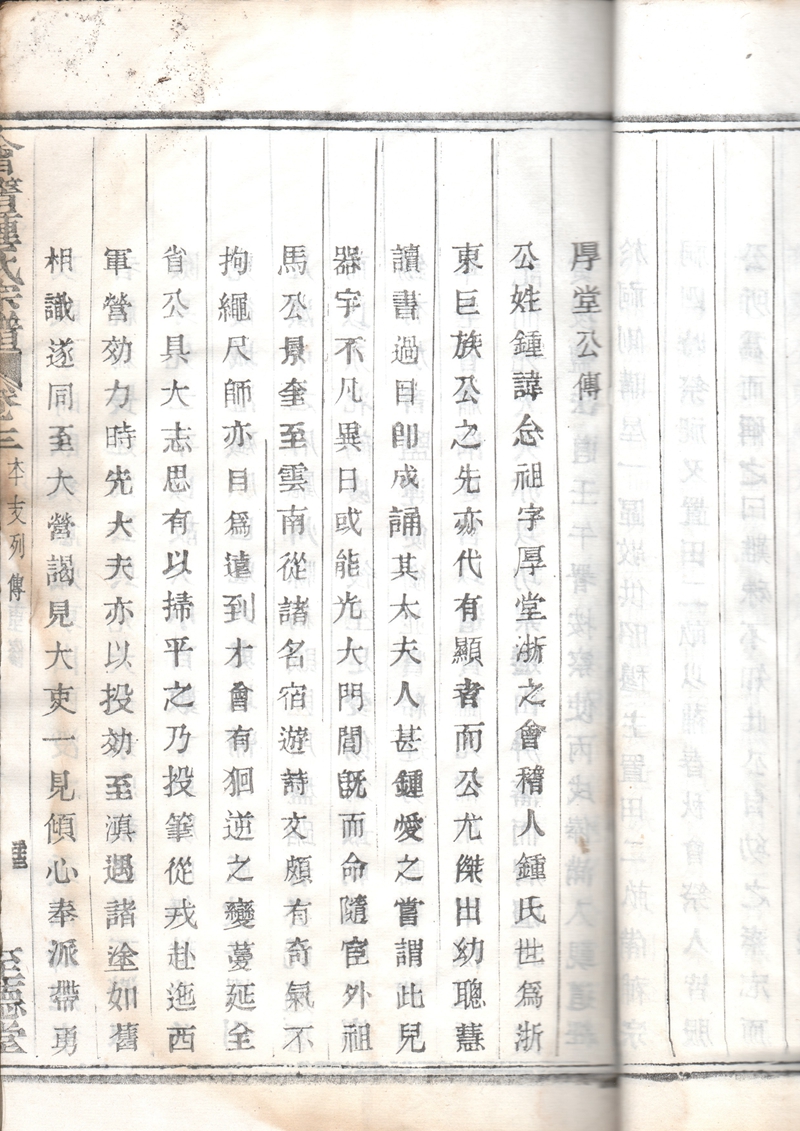 厚堂公傳
公姓鍾諱念祖字厚堂浙之會稽人鍾氏世爲浙
東巨族公之先亦代有顯者而公尤傑出幼聰慧
讀書過目卽成誦其太夫人甚鍾愛之嘗謂此兒
器宇不凡異日或能光大門閭旣而命隨宦外祖
馬公景奎至雲南從諸名宿遊詩文頗有奇氣不
拘繩尺師亦目爲遠到才會有狪逆之變蔓延全
省公具大志思有以掃平之乃投筆從戎赴迤西
軍營効力時先大夫亦以投効至滇遇諸塗如舊
相識遂同至大營謁見大吏一見傾心奉派帶勇
會稽鍾氏宗譜 卷三 本支列傳 至德堂